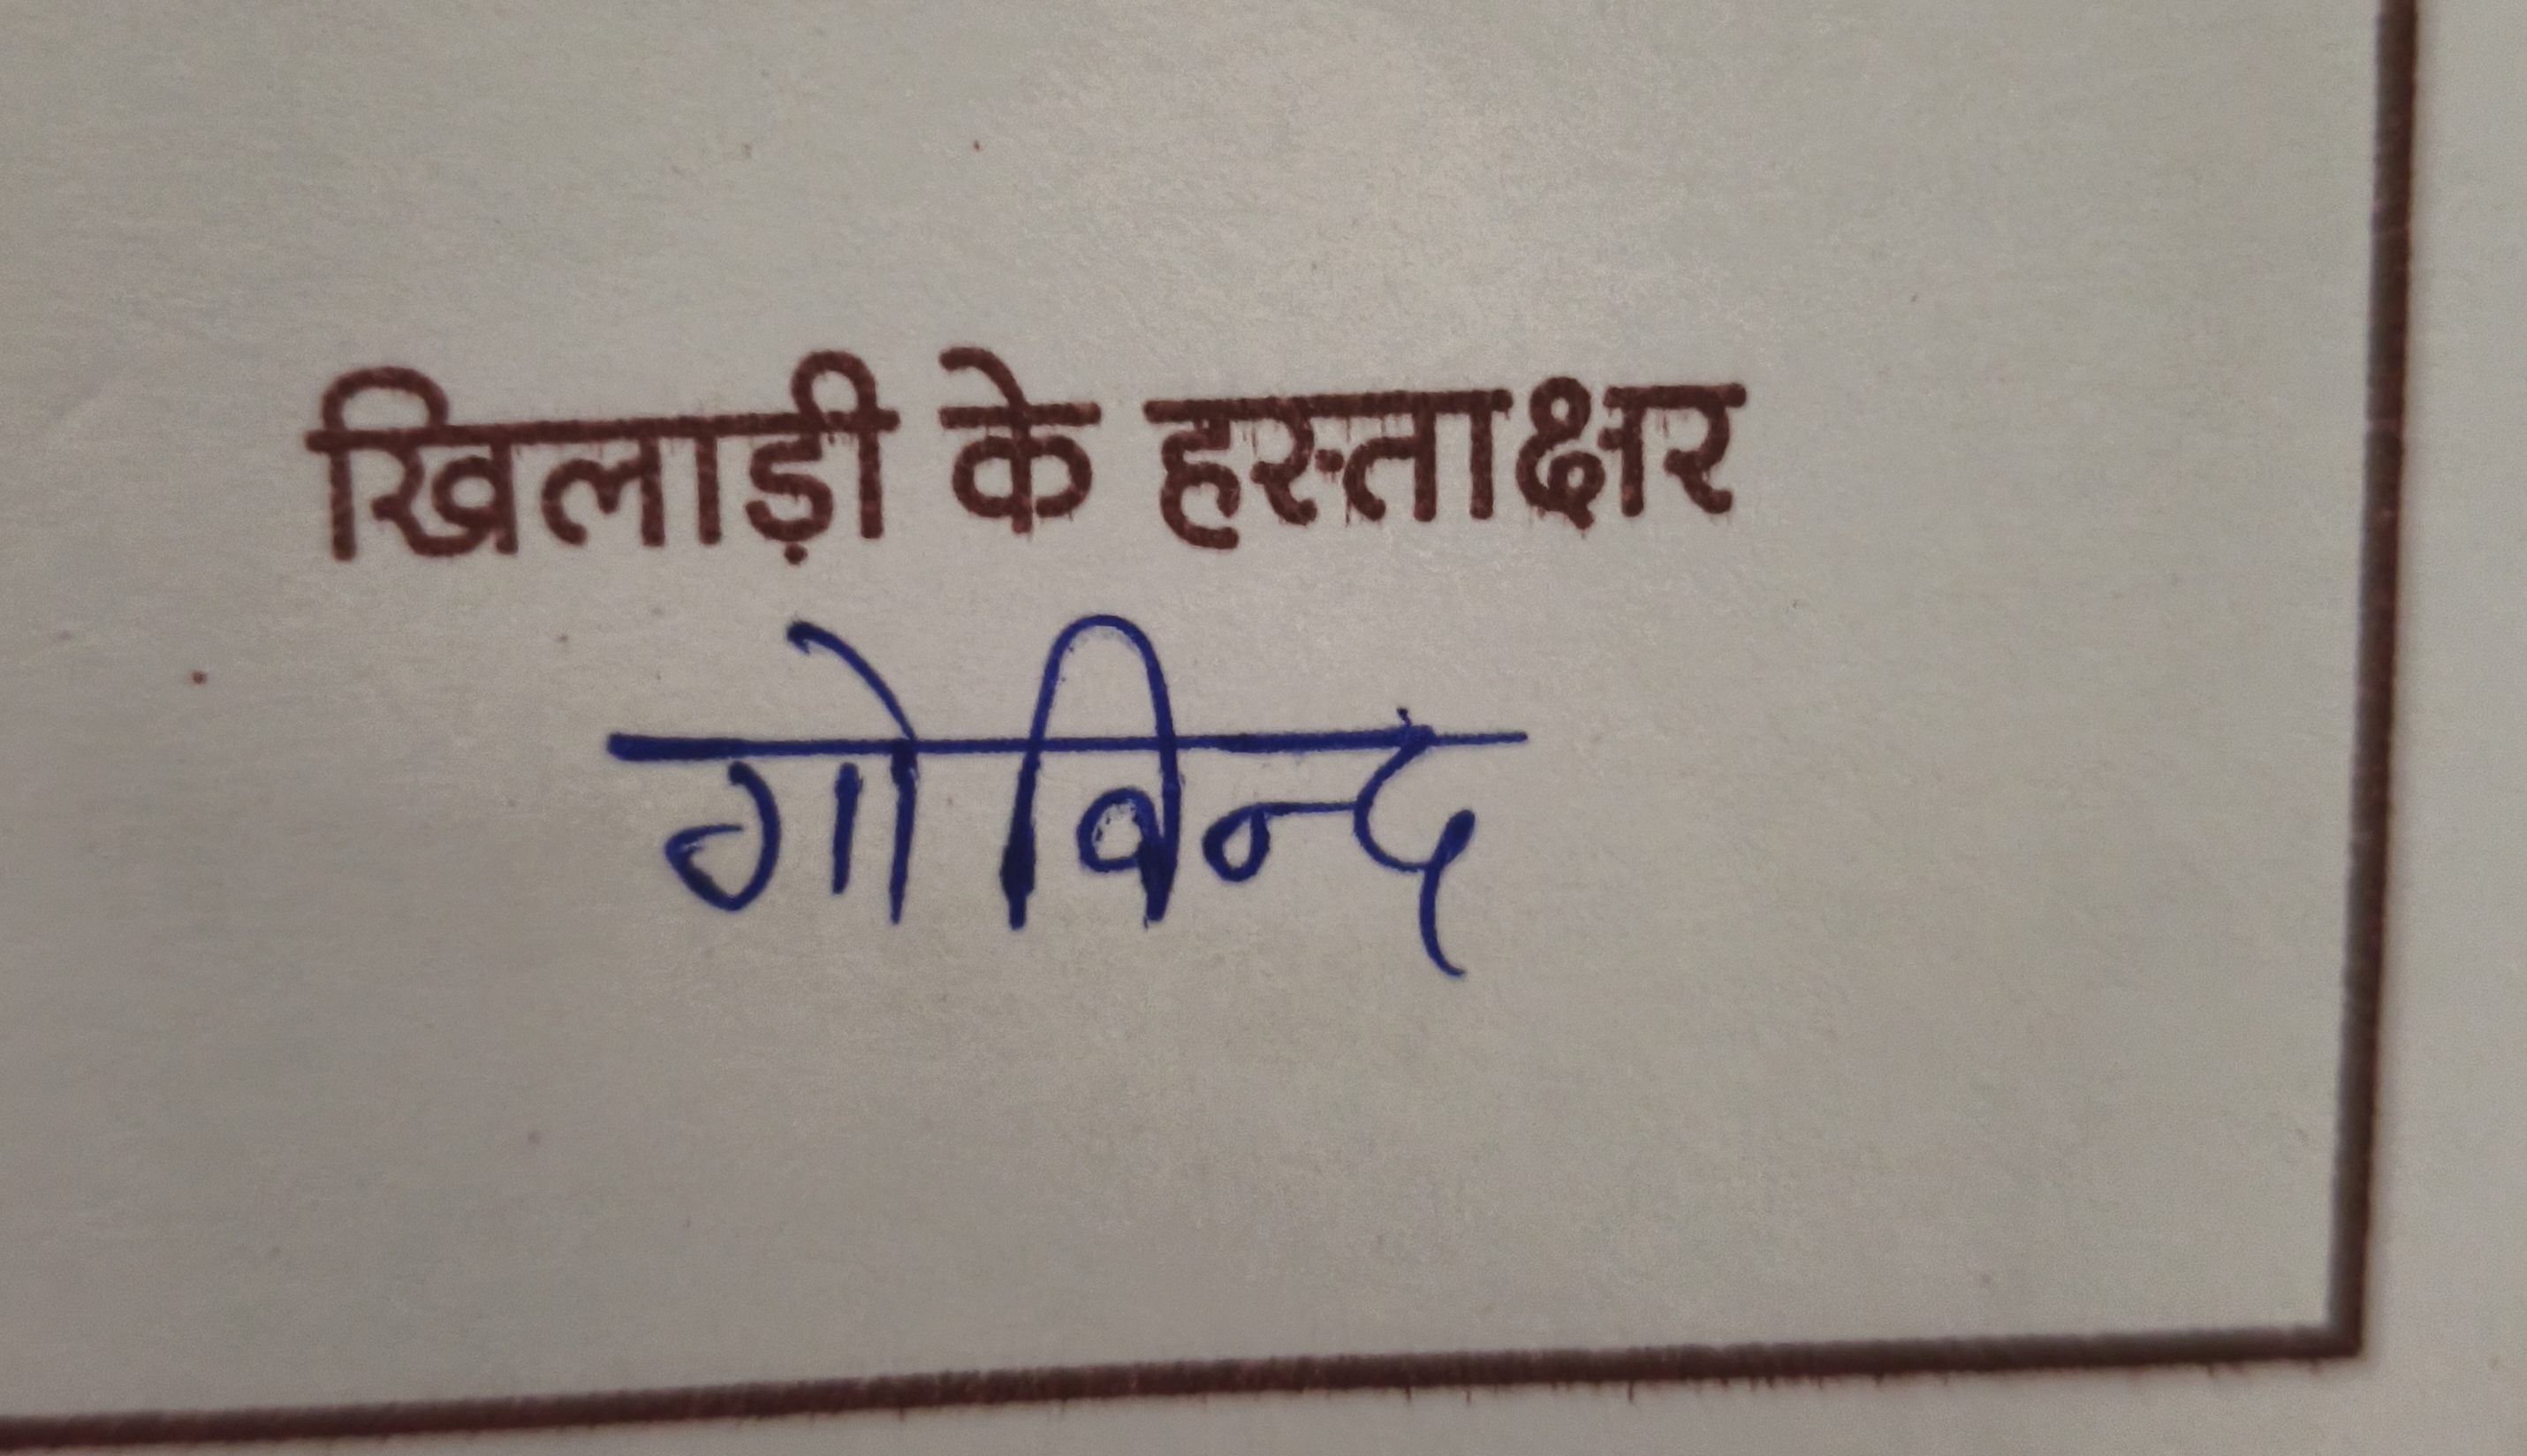 खिलाड़ी के हस्ताक्षर
गोविन्द